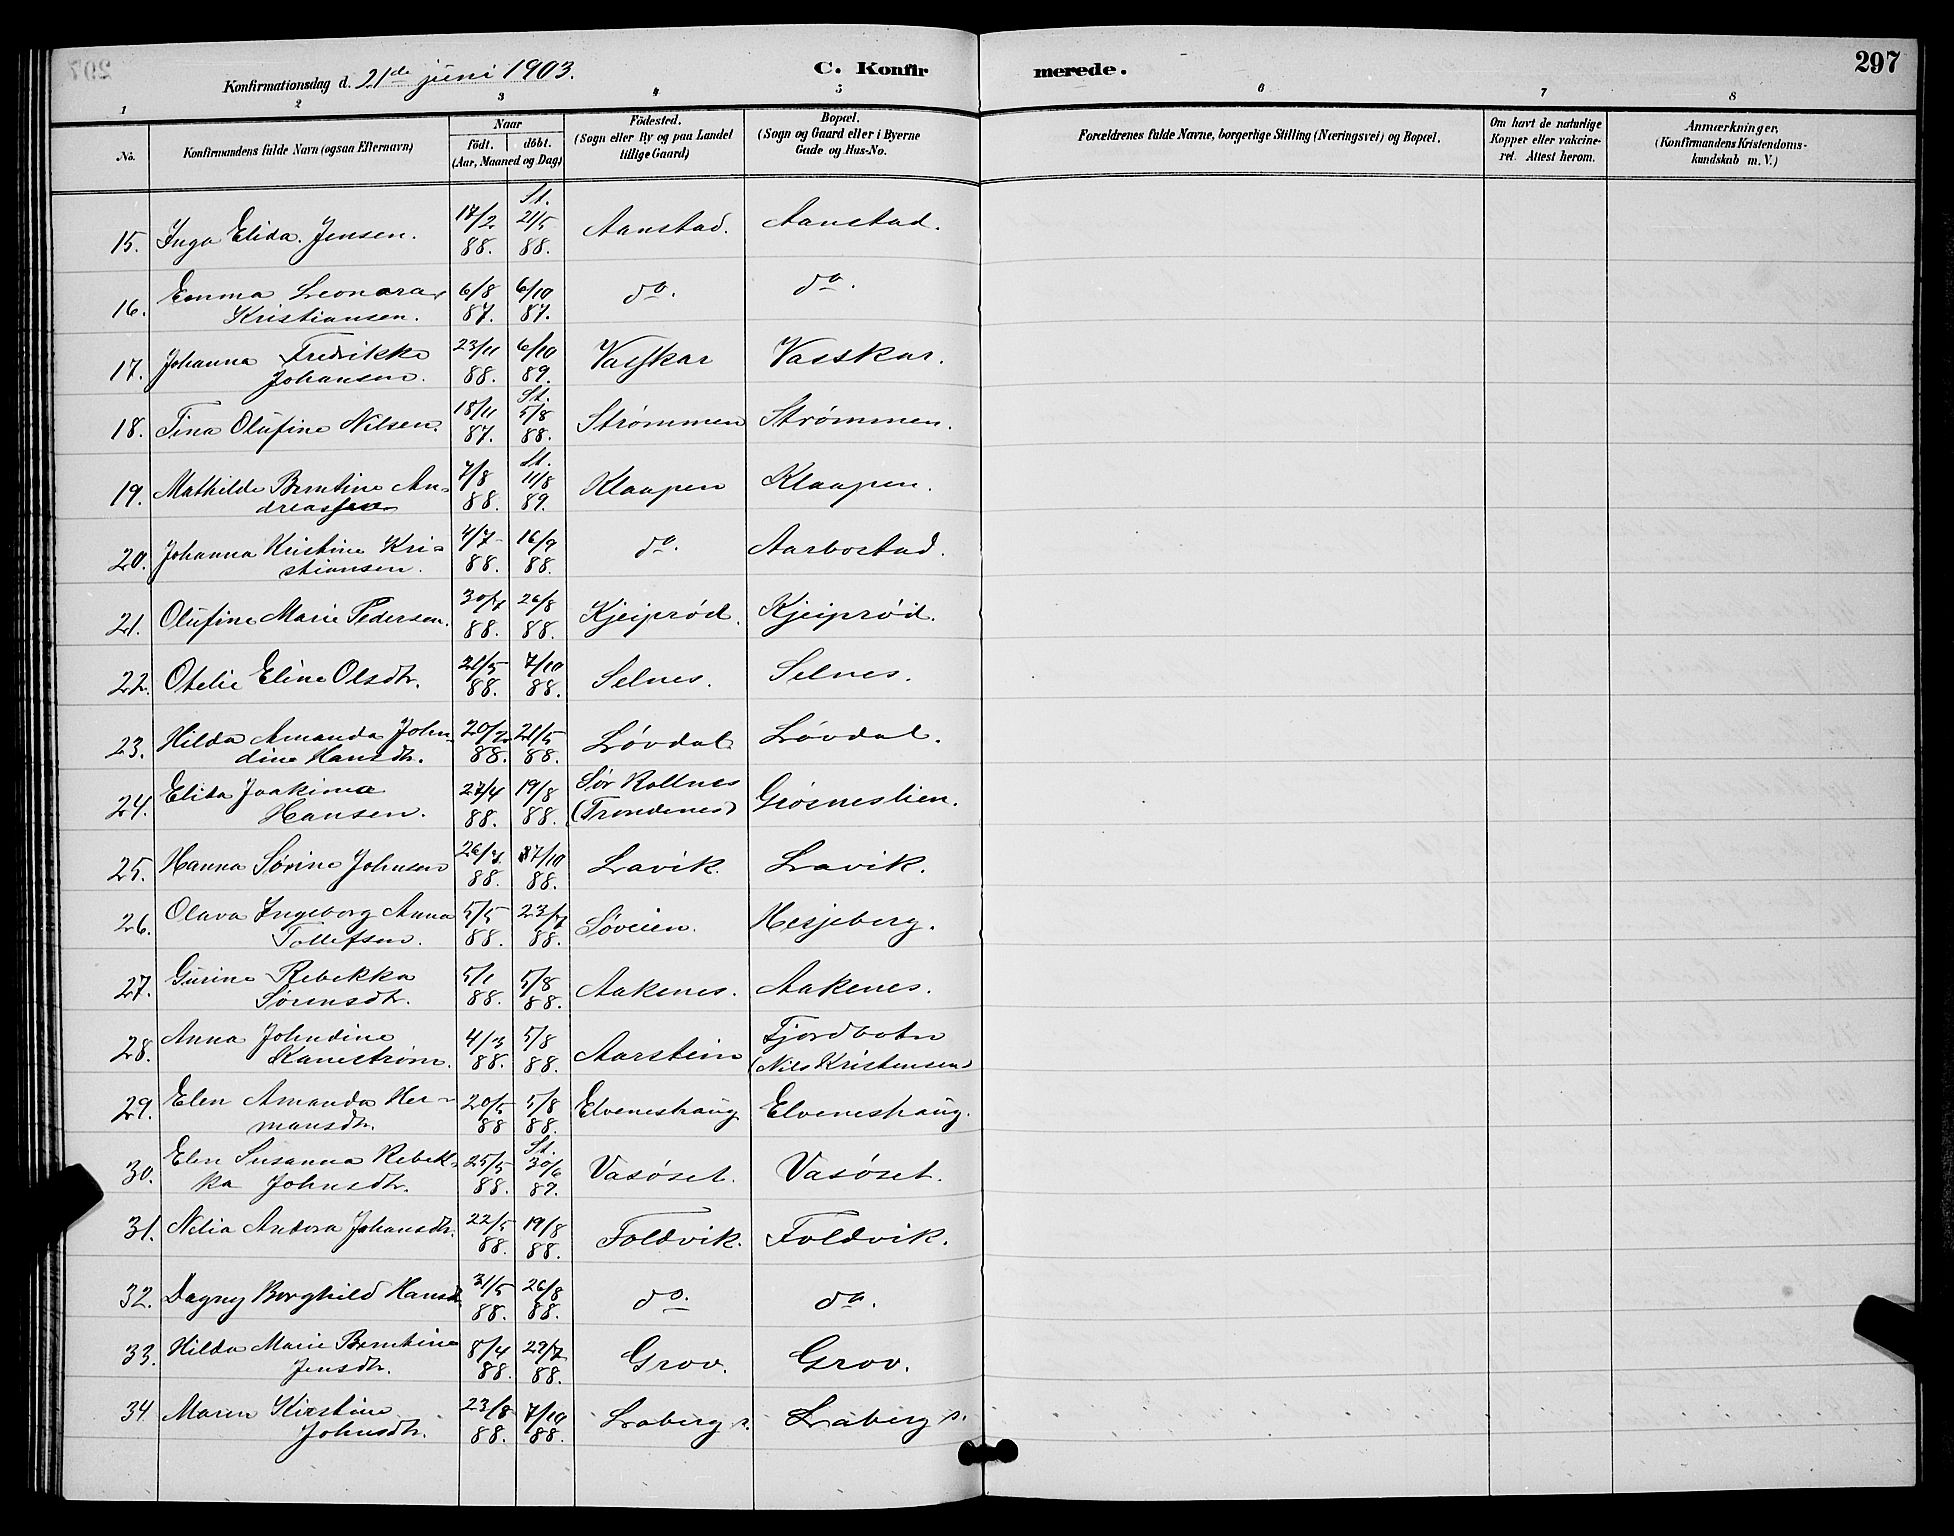 297
Konfirmationsdag d. 21de juni 1903.
C. Konfirmerede.
1 2 3 4 5 6 7 8
No.
Konfirmandens fulde Navn (ogsaa Efternavn)
Naar
födt. döbt.
(Aar, Maaned og Dag)
Födested.
(Sogn eller By og paa Landet
tillige Gaard)
Bopæl.
(Sogn og Gaard eller i Byerne
Gade og Hus-No.
Forældrenes fulde Navne, borgerlige Stilling (Næringsvei) og Bopæl.
Om havt de naturlige
Kopper eller vakcine-
ret. Attest herom.
Anmærkninger,
(Konfirmandens Kristendoms-
kundskab m. V.)
St.
15. Inga Elida Jensen. 17/2 21/5 Aanstad. Aanstad.
88. 88.
16. Emma Leonara 6/8 6/10 do. do.
Kristiansen. 87. 87.
17. Johanna Fredrikke 23/11 6/10 Vasskar Vasskar.
Johansen. 88. 89.
St.
18. Tina Olufine Nilsen. 18/11 5/8 Strømmen Strømmen.
87. 88.
St.
19. Mathilde Berntine An- 7/8 11/8 Klaapen Klaapen.
dreassen 88. 89.
20. Johanna Kristine Kri- 4/7 16/9 do. Aarbostad.
stiansen. 88. 88.
21. Olufine Marie Pedersen. 30/7 26/8 Kjeiprød. Kjeiprød.
88. 88.
22. Otelie Eline Olsdtr. 21/5 7/10 Selnes. Selnes.
88. 88.
23. Hilda Amanda John- 20/2 21/5 Løvdal Løvdal.
dine Hansdtr. 88. 88.
24. Elida Joakima 27/4 19/8 Sør Rollnes Grøsneslien.
Hansen. 88. 88. (Trondenes)
25. Hanna Sørine Johnsen 26/7 7/10 Lavik. Lavik.
88. 88.
26. Olava Ingeborg Anna 5/5 23/7 Søveien. Hesjeberg.
Tollefsen. 88. 88.
27. Gurine Rebekka 5/1 5/8 Aakenes. Aakenes.
Sørensdtr. 88. 88.
28. Anna Johndine 4/3 5/8 Aarstein Fjordbotn
Kanestrøm. 88. 88. (Nils Kristensen)
29. Elen Amanda Her- 20/5 5/8 Elveneshaug Elveneshaug.
mansdtr. 88 88.
St.
30. Elen Susanna Rebek- 25/5 30/6 Vasøset. Vasøset.
ka Johnsdtr. 88. 89.
31. Nelia Andora Johansdtr. 22/5 19/8 Foldvik. Foldvik.
88. 88.
32. Dagny Borghild Hansdtr. 31/5 26/8 do. do.
88. 88.
33. Hilda Marie Berntine 8/4 29/7 Grov. Grov.
Jensdtr. 88. 88.
34 Maren Kirstine 23/8 7/10 Laberg s. Laberg s.
Johnsdtr. 88. 88.